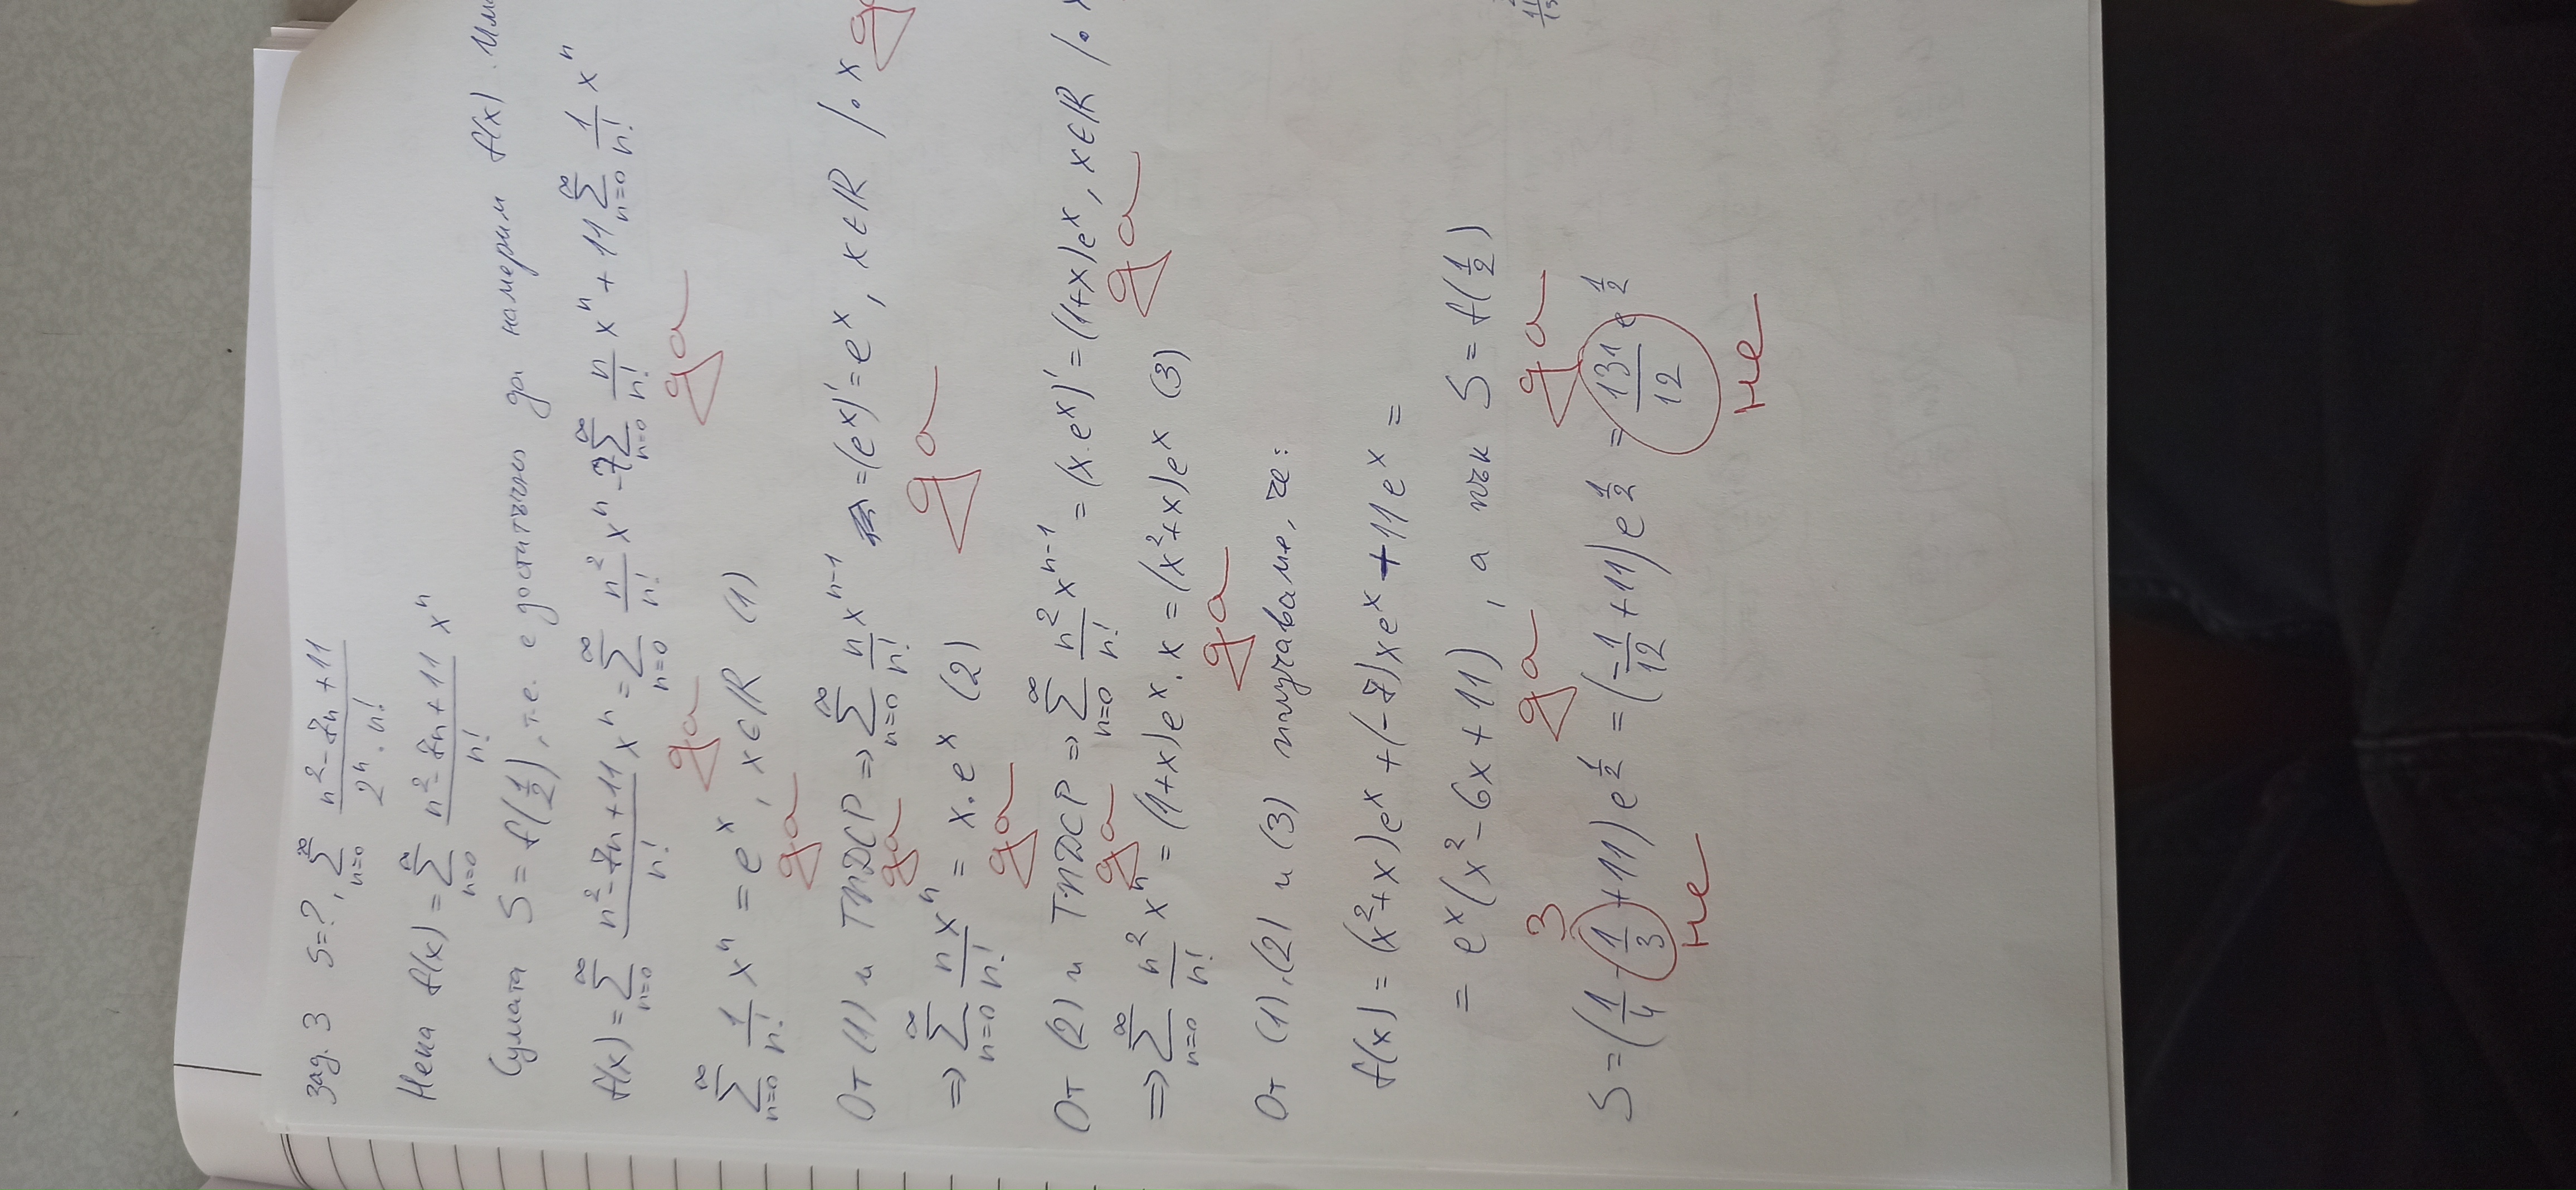 зад. 3 S=?, ∑_{n=0}^{∞} (n²-7n+11)/(2ⁿ.n!)
Нека f(x) = ∑_{n=0}^{∞} (n²-7n+11)/n! xⁿ
Сумата S = f(1/2), т.е. е достатъчно да намерим f(x). Има
f(x) = ∑_{n=0}^{∞} (n²-7n+11)/n! xⁿ = ∑_{n=0}^{∞} n²/n! xⁿ -7∑_{n=0}^{∞} n/n! xⁿ + 11∑_{n=0}^{∞} 1/n! xⁿ
да да
∑_{n=0}^{∞} 1/n! xⁿ = eˣ, x∈ℝ (1)
да
От (1) и ТПДСР ⇒ ∑_{n=0}^{∞} n/n! xⁿ⁻¹ = (eˣ)' = eˣ, x∈ℝ /. x да
да да
⇒ ∑_{n=0}^{∞} nxⁿ/n! = x.eˣ (2)
да
От (2) и ТПДСР ⇒ ∑_{n=0}^{∞} n²/n! xⁿ⁻¹ = (x.eˣ)' = (1+x)eˣ, x∈ℝ /. x
да да
⇒ ∑_{n=0}^{∞} n²/n! xⁿ = (1+x)eˣ.x = (x²+x)eˣ (3)
да
От (1),(2) и (3) получаваме, че:
f(x) = (x²+x)eˣ + (-7)xeˣ + 11eˣ =
= eˣ(x²-6x+11), а пък S = f(1/2)
3 да да
S = (1/4 - 1/3 + 11)e^{1/2} = (-1/12 + 11)e^{1/2} = 131/12 e^{1/2}
не
не